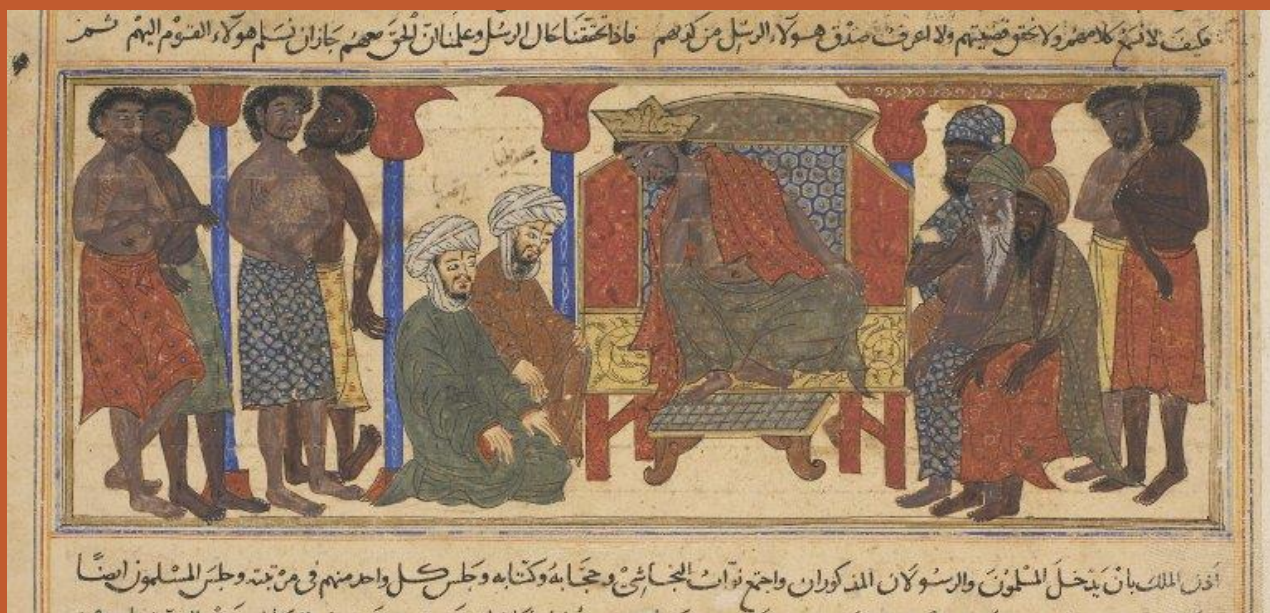 فكيف لا نسمع كلامهم ولا نحقق قضيتهم ولا اعرف صدق هولاء الرسل من كذبهم فاذا تحققنا حال الرسل وعلمنا ان الحق معهم جاز ان نسلم هولاء القوم اليهم ثم
اذن الملك بان يدخل المسلمون والرسولان المذكوران واجتمع نواب النجاشي وحجابه وكتابه وجلس كل واحد منهم فى مرتبته وجلس المسلمون ايضًا